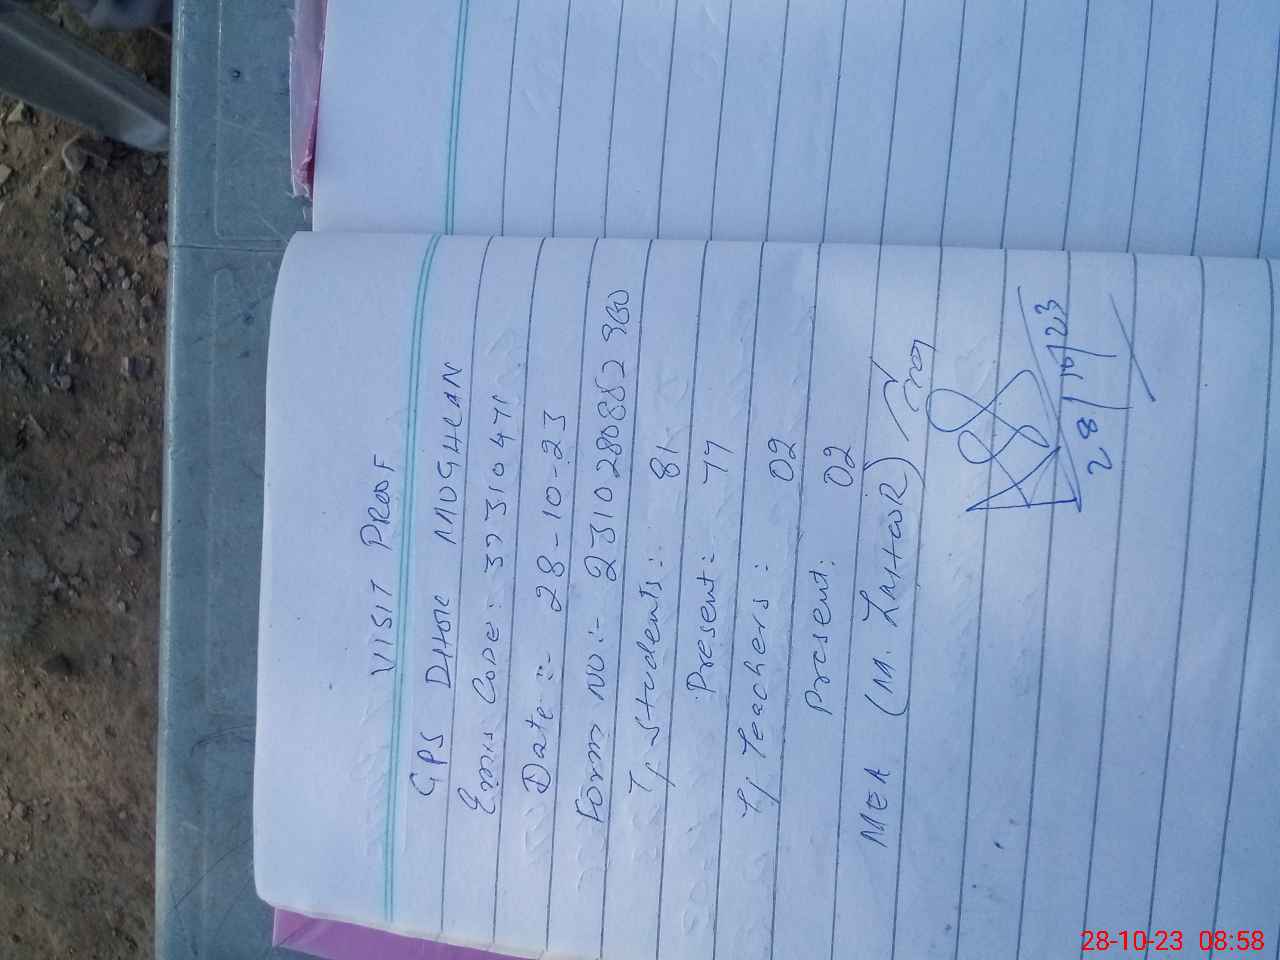 VISIT PROOF
GPS DHOK MUGHLAN
Emis Code: 37310471
Date :- 28-10-23
Form No:- 2310280852960
T/ Students: 81
Present: 77
T/ Teachers: 02
Present: 02
MEA (M.
28/10/23
28-10-23 08:58